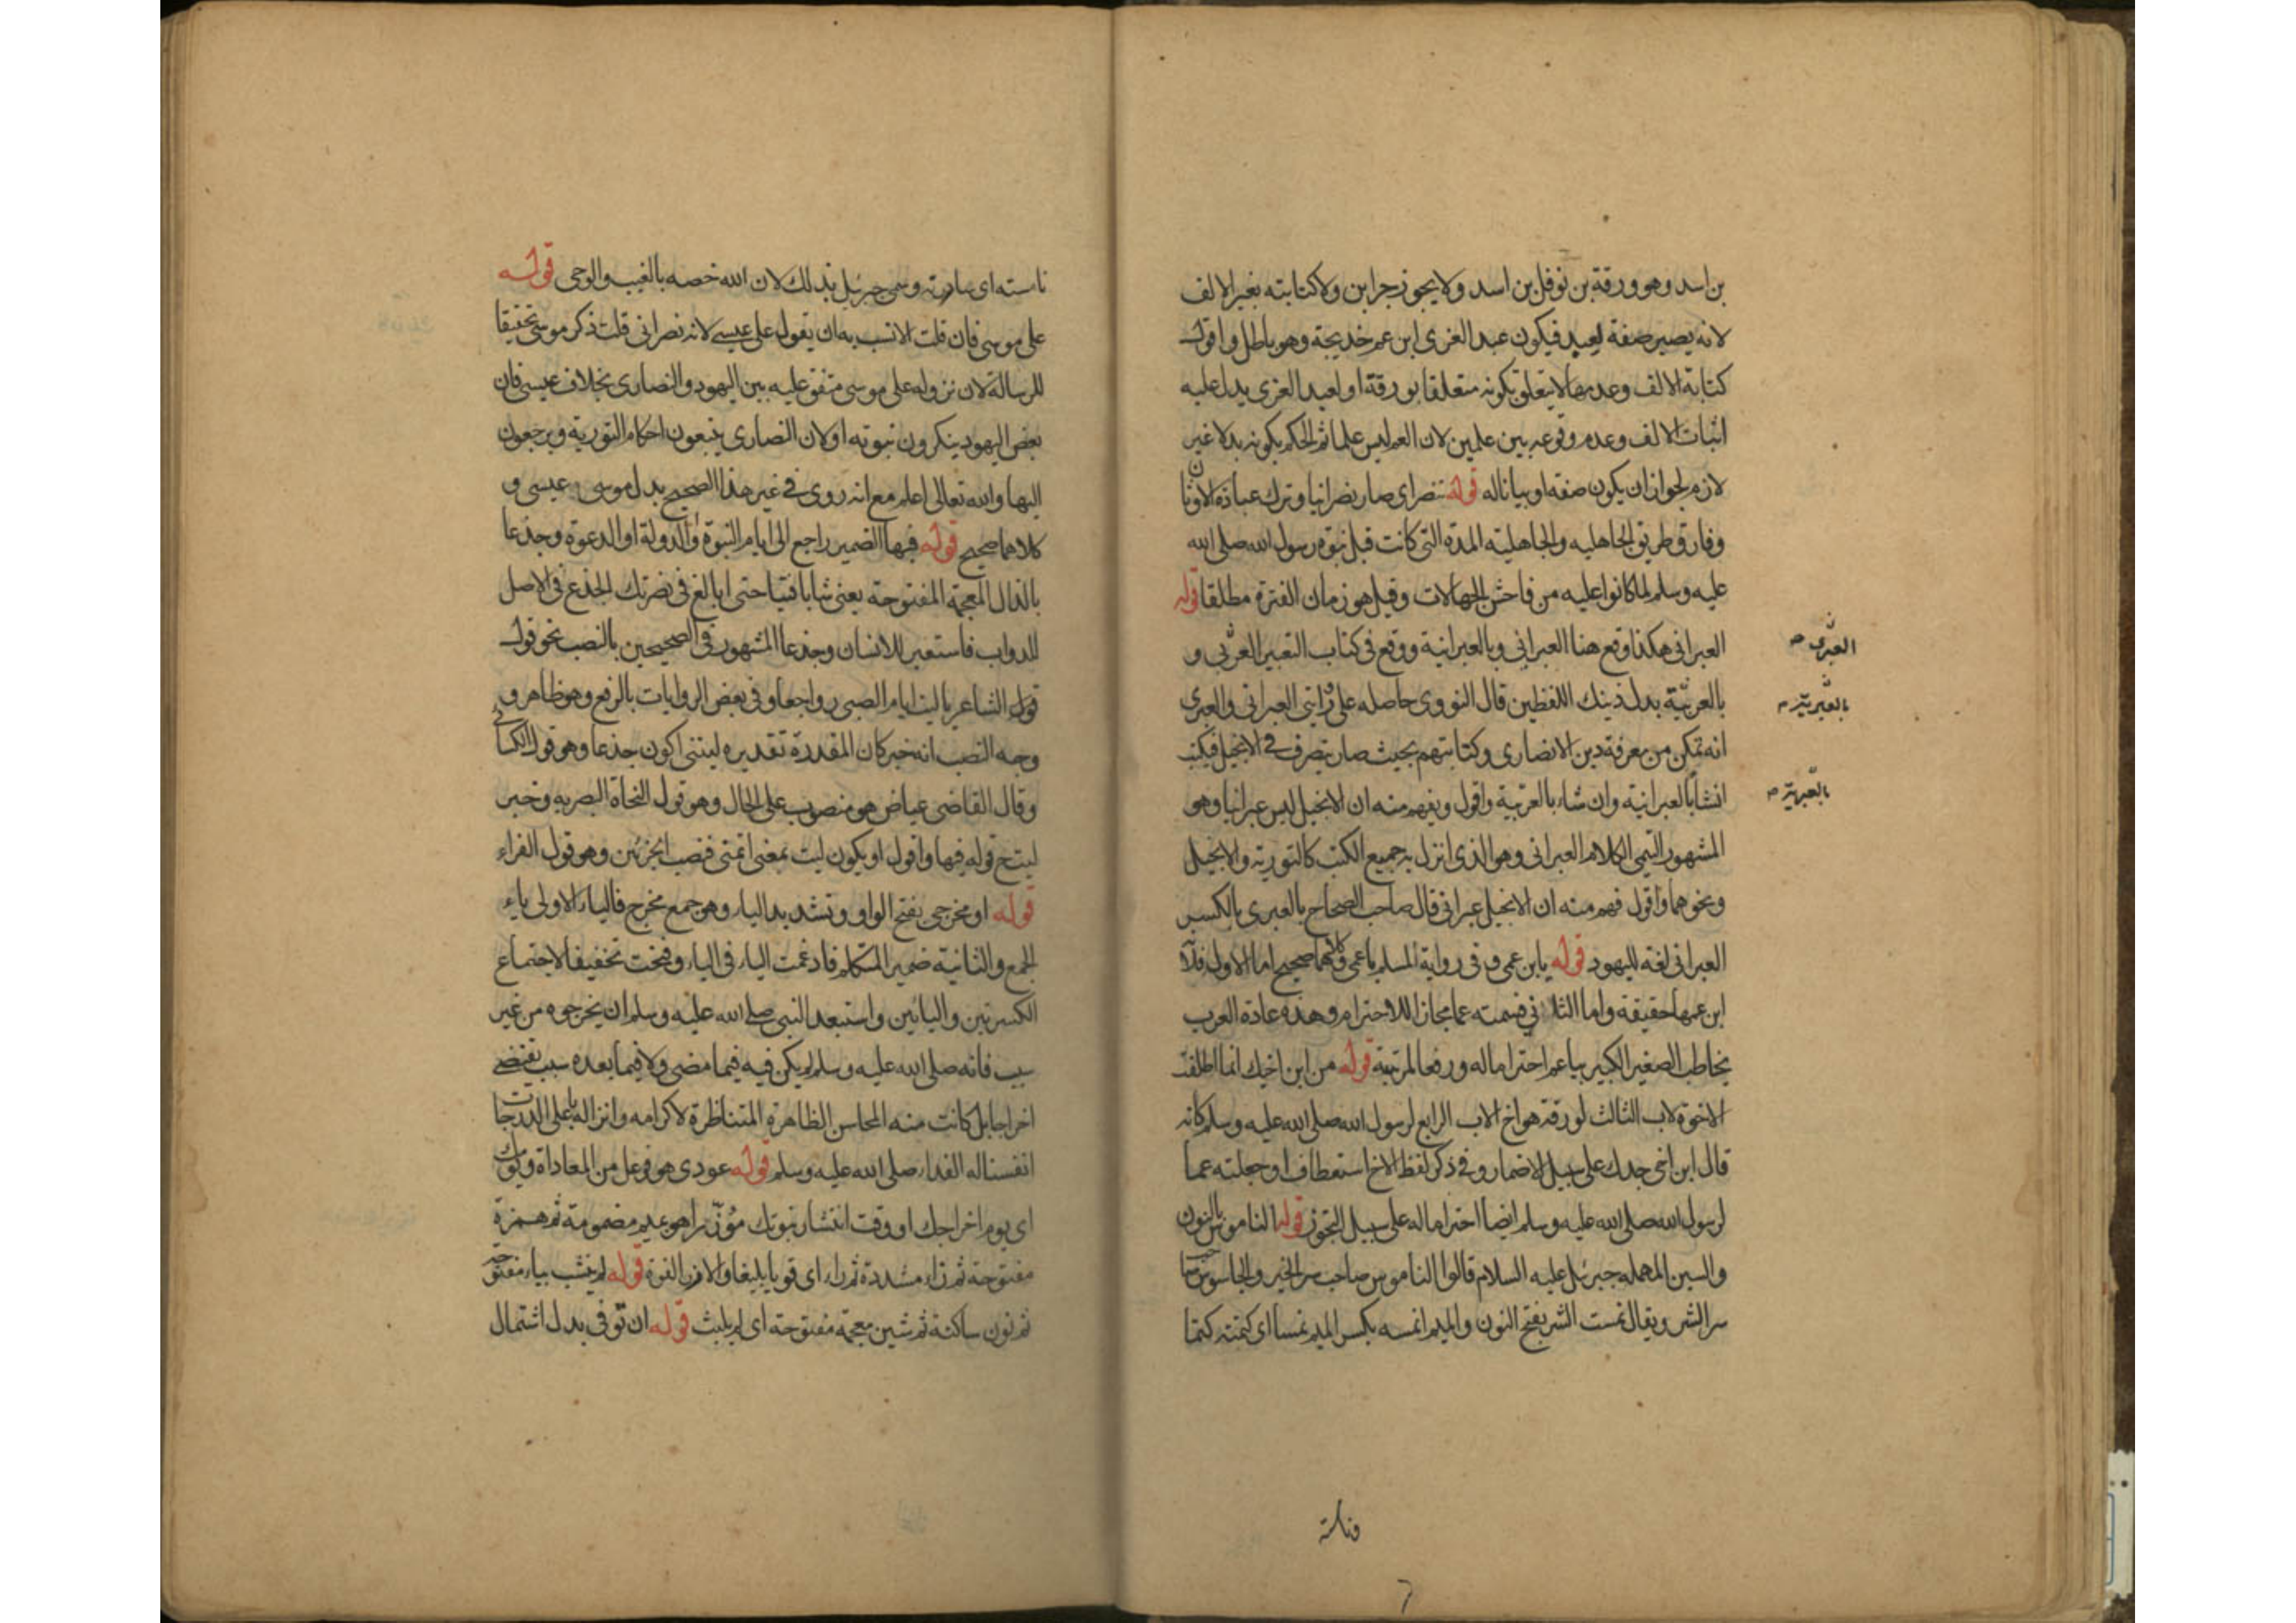 بن اسد وهو ورقة بن نوفل بن اسد ولا يجوز جر ابن ولا كتابته بغير الالف
لانه يصير صفة لعبد فيكون عبد العزى ابن عم خديجة وهو باطل واقول
كتابة الالف وعدمها لا يتعلق بكونه متعلقا بورقة او لعبد العزى يدل عليه
اثبات الالف وعدم وقوعه بين علمين لان العم ليس علما ثم الحكم بكونه بدلا غير
لازم لجواز ان يكون صفة او بيانا له قوله تنصر اى صار نصرانيا وترك عبادة الاوثان
وفارق طريق الجاهليه والجاهلية المدة التى كانت قبل نبوة رسول الله صلى الله
عليه وسلم لما كانوا عليه من فاحش الجهالات وقيل هو زمان الفترة مطلقا قوله
العبرانى هكذا وقع هنا العبرانى وبالعبرانية ووقع فى كتاب التعبير العربى و
العبرى
بالعربية بدل ذينك اللفظين قال النووى حاصله على روايتى العبرانى والعبرى
بالعبرية
انه تمكن من معرفة دين الانصارى وكتابتهم بحيث صار يتصرف فى الانجيل فيكتب
انشا بالعبرانية وان شاء بالعربية واقول ويفهم منه ان الانجيل ليس عبرانيا وهو
بالعبرية
المشهور التيمى الكلام العبرانى وهو الذى انزل به جميع الكتب كالتورية والانجيل
ونحوهما واقول فهم منه ان الانجيل عبرانى قال صاحب الصحاح بالعبرى بالكسر
العبرانى لغة لليهود قوله يابن عمى وفى رواية المسلم يا عمى وكلاهما صحيح اما الاول فلانه
ابن عمها حقيقة واما الثانى فسمته عما مجازا للاحترام وهذه عادة العرب
يخاطب الصغير الكبير بيا عم احتراما له ورفعا لمرتبته قوله من ابن اخيك انما اطلقت
الاخوة لاب الثالث لورقة هو اخ الاب الرابع لرسول الله صلى الله عليه وسلم كانه
قال ابن اخى جدك على سبيل الاضمار وفى ذكر لفظ الاخ استعطاف او جعلته عما
لرسول الله صلى الله عليه وسلم ايضا احتراما له على سبيل التجوز قوله الناموس بالنون
والسين المهمله جبرئل عليه السلام قالوا الناموس صاحب سر الخير والجاسوس صاحب
سر الشر ويقال نمست الشر بفتح النون والميم انمسه بكسر الميم نمسا اى كتمته كتما
ونامسته
نامسته اى ساررته وسمى جبرئل بذلك لان الله خصه بالغيب والوحى قوله
على موسى فان قلت الانسب به ان يقول على عيسى لانه نصرانى قلت ذكر موسى تحقيقا
للرسالة لان نزوله على موسى متفق عليه بين اليهود والنصارى بخلاف عيسى فان
بعض اليهود ينكرون نبوته او لان النصارى يتبعون احكام التورية ويرجعون
اليها والله تعالى اعلم مع انه روى فى غير هذا الصحيح بدل موسى عيسى و
كلاهما صحيح قوله فيها الضمير راجع الى ايام النبوة والدولة او الدعوة وجذعا
بالذال المعجمة المفتوحة يعنى شابا فتيا حتى ابالغ فى نصرتك الجذع فى الاصل
للدواب فاستعير للانسان وجذعا المشهور فى الصحيحين بالنصب نحو قول
قول الشاعر ياليت ايام الصبى رواجعا وفى بعض الروايات بالرفع وهو ظاهر و
وجه النصب انه خبر كان المقدرة تقديره ليتنى اكون جذعا وهو قول الكسائى
وقال القاضى عياض هو منصوب على الحال وهو قول النحاة البصريه وخبر
ليت ح قوله فيها واقول او يكون ليت بمعنى اتمنى فنصب الجزئين وهو قول الفراء
قوله او مخرجى بفتح الواو وتشديد الياء وهو جمع مخرج فالياء الاولى ياء
الجمع والثانية ضمير المتكلم فادغمت الياء فى الياء وفتحت تخفيفا لاجتماع
الكسرتين واليائين واستبعد النبى صلى الله عليه وسلم ان يخرجوه من غير
سبب فانه صلى الله عليه وسلم لم يكن فيه فيما مضى ولا فيما بعده سبب يقتضى
اخراجا بل كانت منه المحاسن الظاهرة المتناظرة لاكرامه وانزاله باعلى الدرجات
انفسنا له الفداء صلى الله عليه وسلم قوله عودى هو فوعل من المعاداة ويومك
اى يوم اخراجك او وقت انتشار نبوتك مؤزرا هو بميم مضمومة ثم همزة
مفتوحة ثم زاء مشددة ثم راء اى قويا بليغا والازر القوة قوله لم ينشب بياء مفتوحة
ثم نون ساكنة ثم شين معجمة مفتوحة اى لم يلبث قوله ان توفى بدل اشتمال